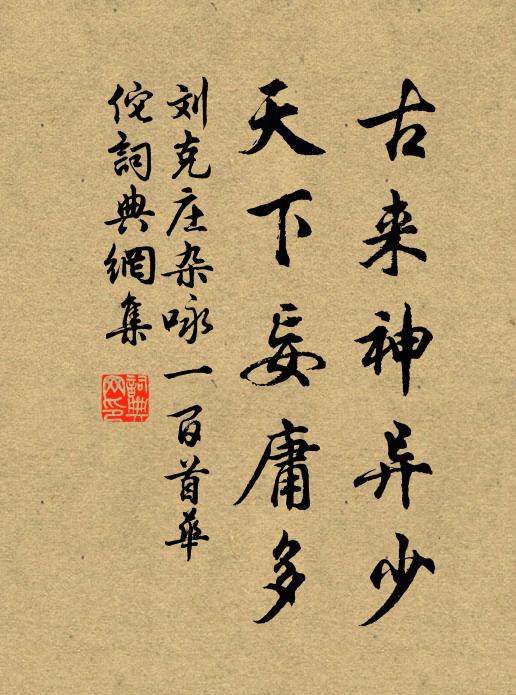 古来神异少
天下妄庸多
刘克庄杂咏一百首华
佗詞典網集
詞典网印